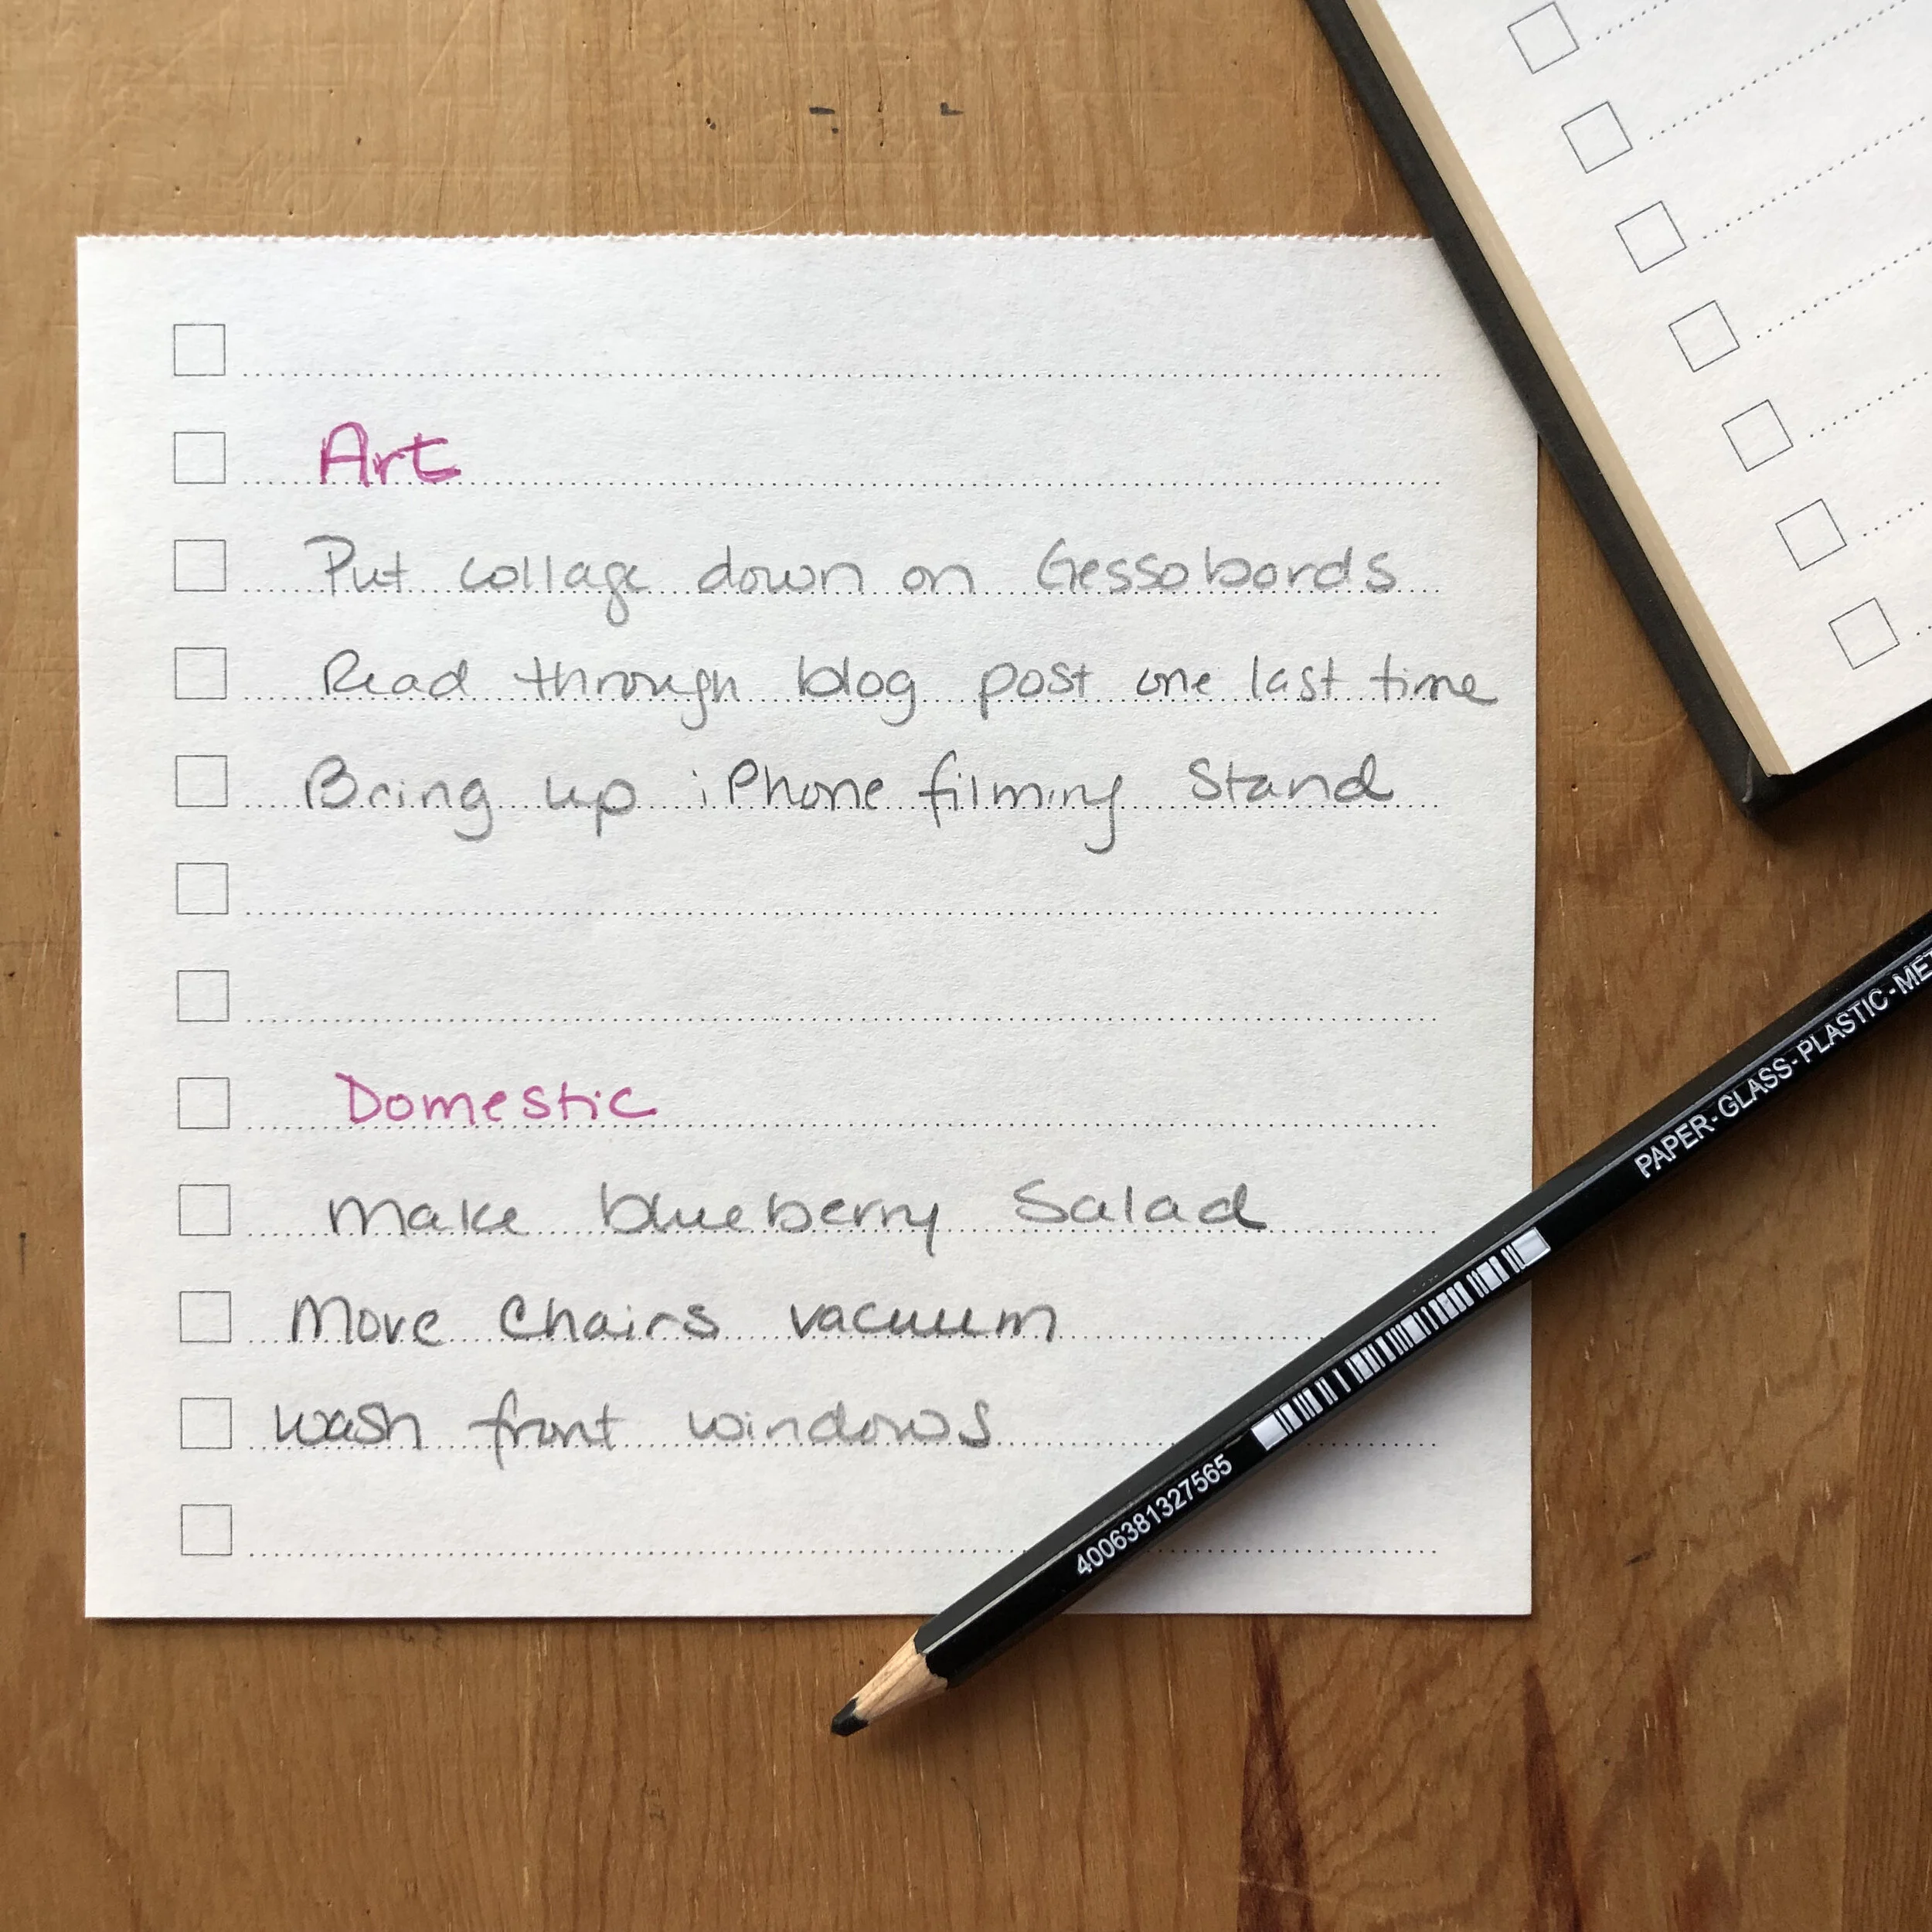 Art
Put collage down on Gessobords
Read through blog post one last time
Bring up iPhone filming Stand
Domestic
Make blueberry Salad
Move Chairs vacuum
wash front windows
PAPER-GLASS-PLASTIC-MET
4006381327565